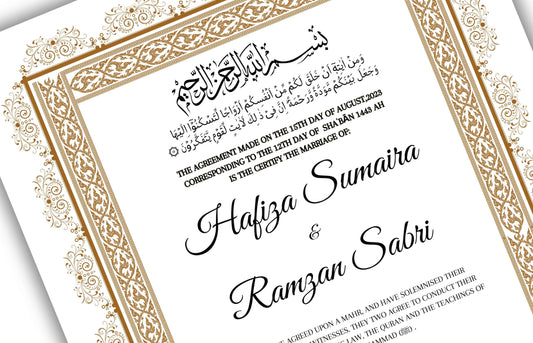 بِسْمِ اللَّهِ الرَّحْمَٰنِ الرَّحِيمِ
وَمِنْ آيَٰتِهِ أَنْ خَلَقَ لَكُم مِّنْ أَنفُسِكُمْ أَزْوَاجًا لِّتَسْكُنُوٓا۟ إِلَيْهَا
وَجَعَلَ بَيْنَكُم مَّوَدَّةً وَرَحْمَةً إِنَّ فِي ذَٰلِكَ لَآيَٰتٍ لِّقَوْمٍ يَتَفَكَّرُونَ
THE AGREEMENT MADE ON THE 15TH DAY OF AUGUST,2023
CORRESPONDING TO THE 12TH DAY OF SHA'BĀN 1443 AH
IS THE CERTIFY THE MARRIAGE OF:
Hafiza Sumaira
&
Ramzan Sabri
AGREED UPON A MAHR, AND HAVE SOLEMNISED THEIR
WITNESSES. THEY TWO AGREE TO CONDUCT THEIR
LAW, THE QURAN AND THE TEACHINGS OF
ﷺ .